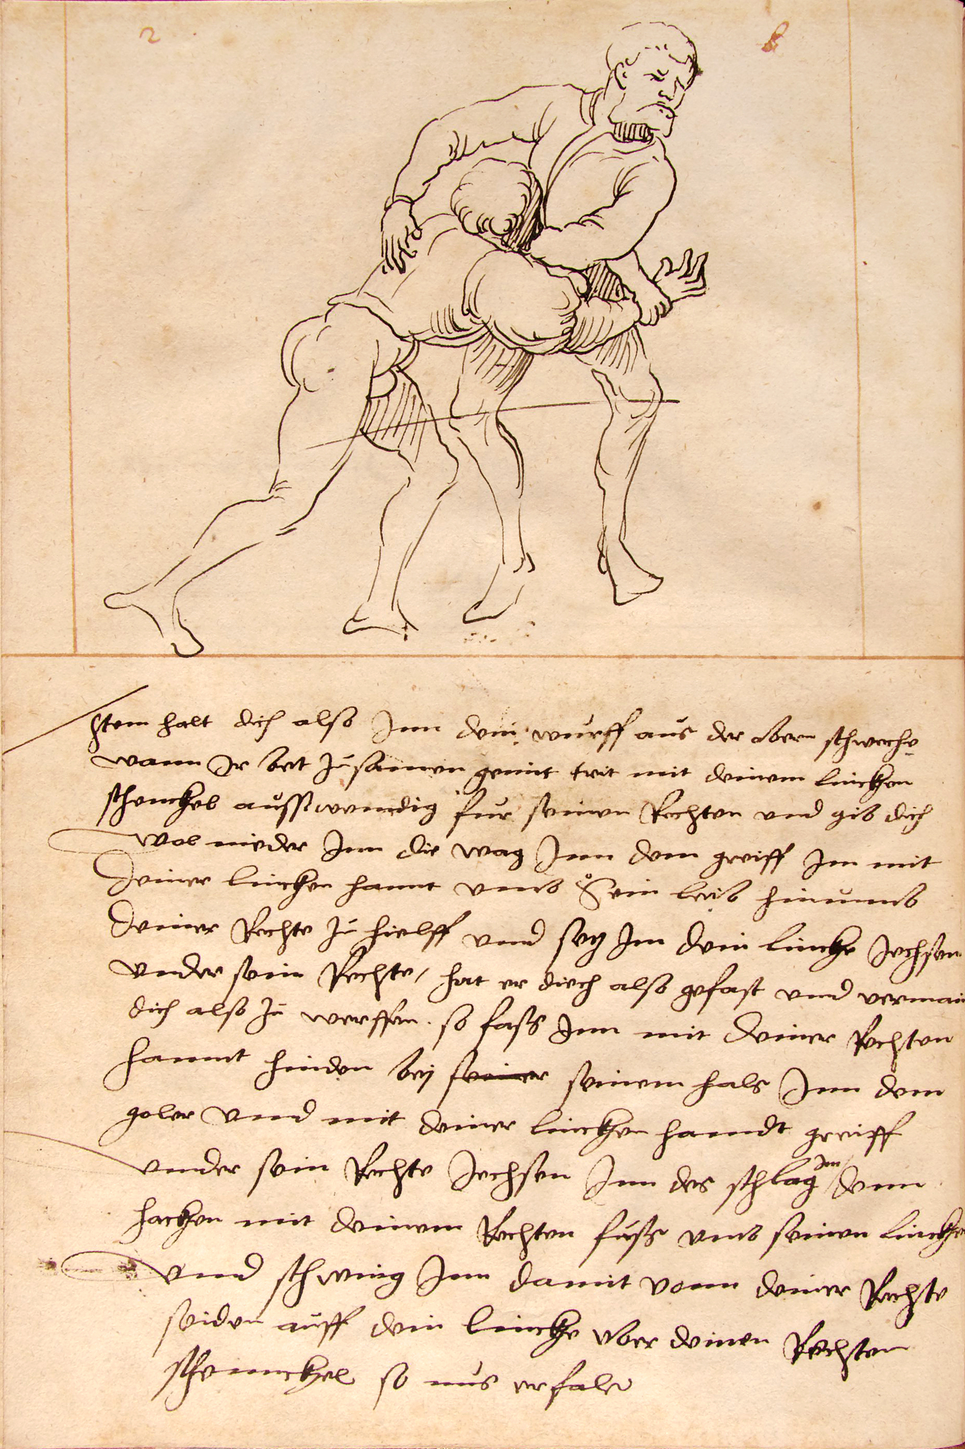 2 8
Item halt dich also Inn dem wurff aus der obern schweche
wann Ir bet zusamen gemit trit mit deinem lincken
schenckel ausswendig fur seinen Rechten und gib dich
wol nieder Inn die wag Inn dem greiff Im mit
deiner lincken hannt umb Sein leib hinumb
deiner Rechte zu hielff und setz Im dein lincke Iechsen
under sein Rechte, hat er diech also gefast und vermain
dich also zu werffen. so fass Inn mit deiner Rechten
hannt hinden bey seiner seinem hals Inn dem
goler unnd mit deiner lincken handt greiff
under sein Rechte Iechsen Inn des schlag Im denn
hacken mit deinem Rechten fuss umb seinen lincke
unnd schwing Inn damit vonn deiner Rechte
seiden auff dein lincke uber deinen Rechten
schennckel so mus er fale